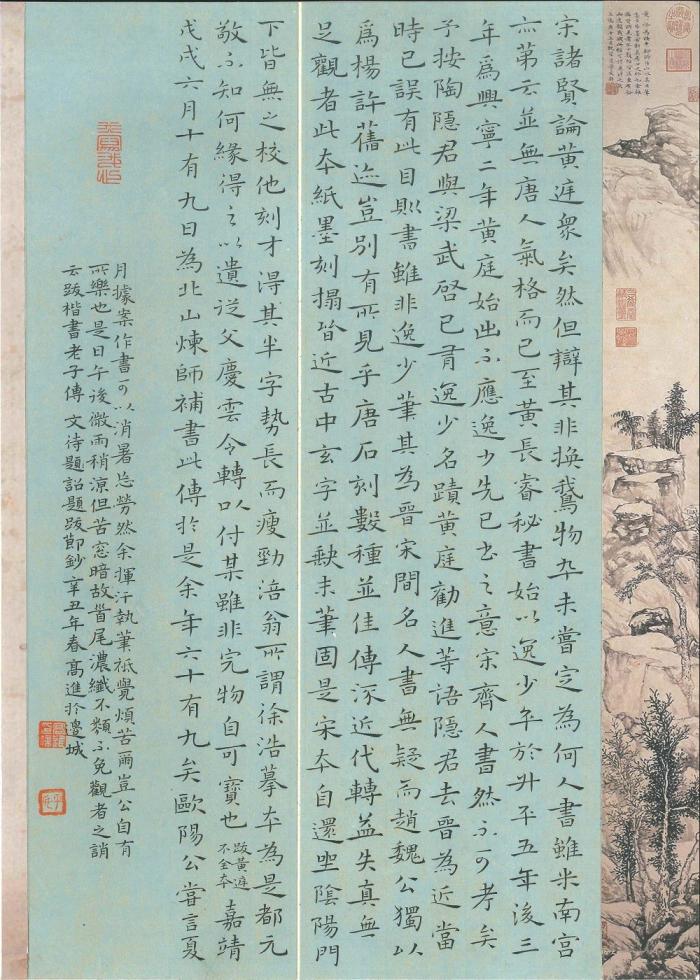 宋諸賢論黃庭衆矣然但辯其非換鵞物耳未嘗定為何人書雖米南宮
亦第云並無唐人氣格而已至黃長睿秘書始以逸少卒於升平五年後三
年為興寧二年黃庭始出不應逸少先已書之意宋齊人書然不可考矣
予按陶隱君與梁武啓已有逸少名蹟黃庭勸進等語隱君去晉為近當
時已誤有此目則書雖非逸少筆其為晉宋間名人書無疑而趙魏公獨以
爲楊許舊迹豈別有所見乎唐石刻數種並佳傳流近代轉益失真無
足觀者此本紙墨刻搨皆近古中玄字並缺末筆固是宋本自還坐陰陽門
下皆無之校他刻才得其半字勢長而瘦勁涪翁所謂徐浩摹本為是都元
敬不知何緣得之以遺從父慶雲令轉以付某雖非完物自可寶也 跋黃庭不全本 嘉靖
戊戌六月十有九日為北山煉師補書此傳於是余年六十有九矣歐陽公嘗言夏
月據案作書可以消暑忘勞然余揮汗執筆祗覺煩苦爾豈公自有
所樂也是日午後微雨稍涼但苦窓暗故首尾濃纖不類不免觀者之誚
云跋楷書老子傳 文待題詔題跋節鈔 辛丑年春高進於邊城